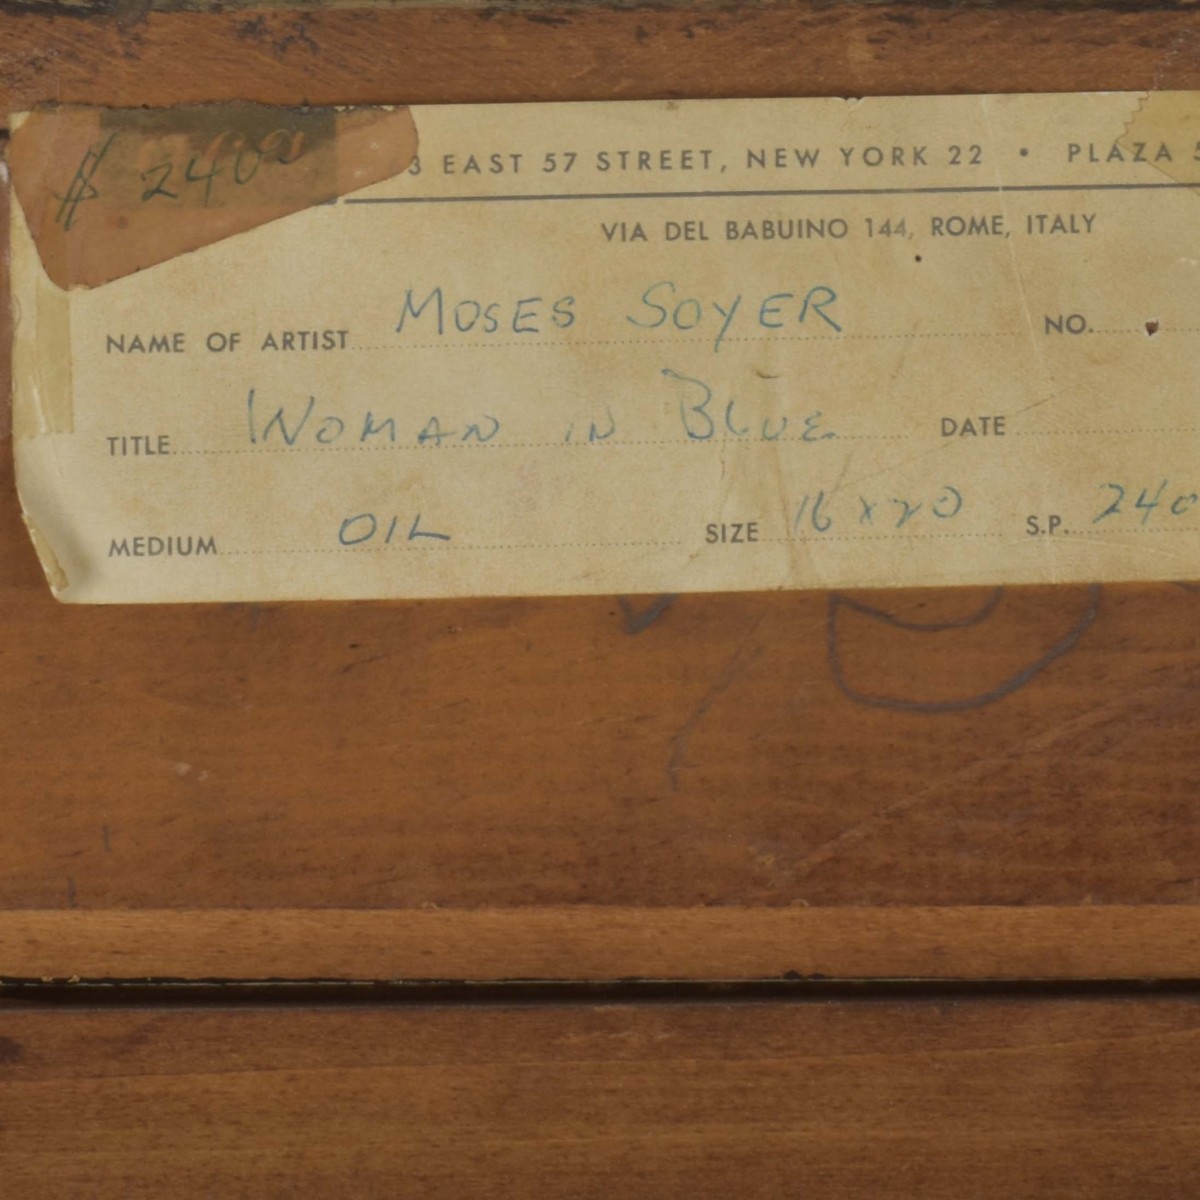 $ 2400
3 EAST 57 STREET, NEW YORK 22 • PLAZA 5
VIA DEL BABUINO 144, ROME, ITALY
NAME OF ARTIST MOSES SOYER NO.
TITLE WOMAN IN BLUE DATE
MEDIUM OIL SIZE 16 x 20 S.P. 240